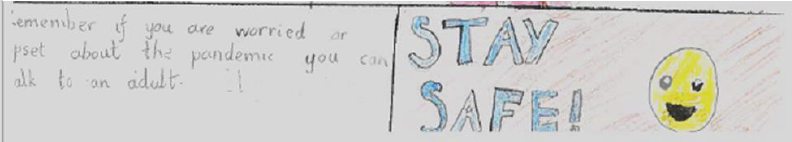 emember if you are worried or
pset about the pandemic you can
alk to an adult.
STAY
SAFE!